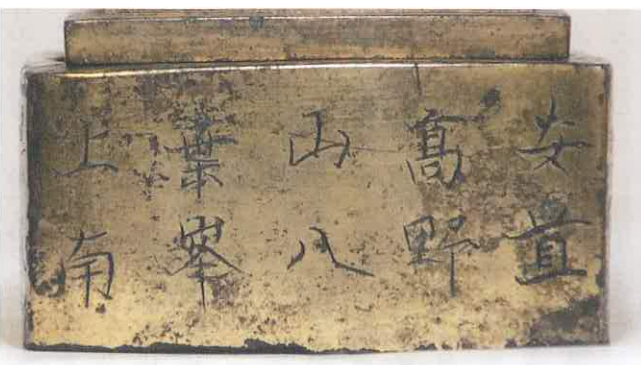 安置
髙野
山八
葉峯
上南